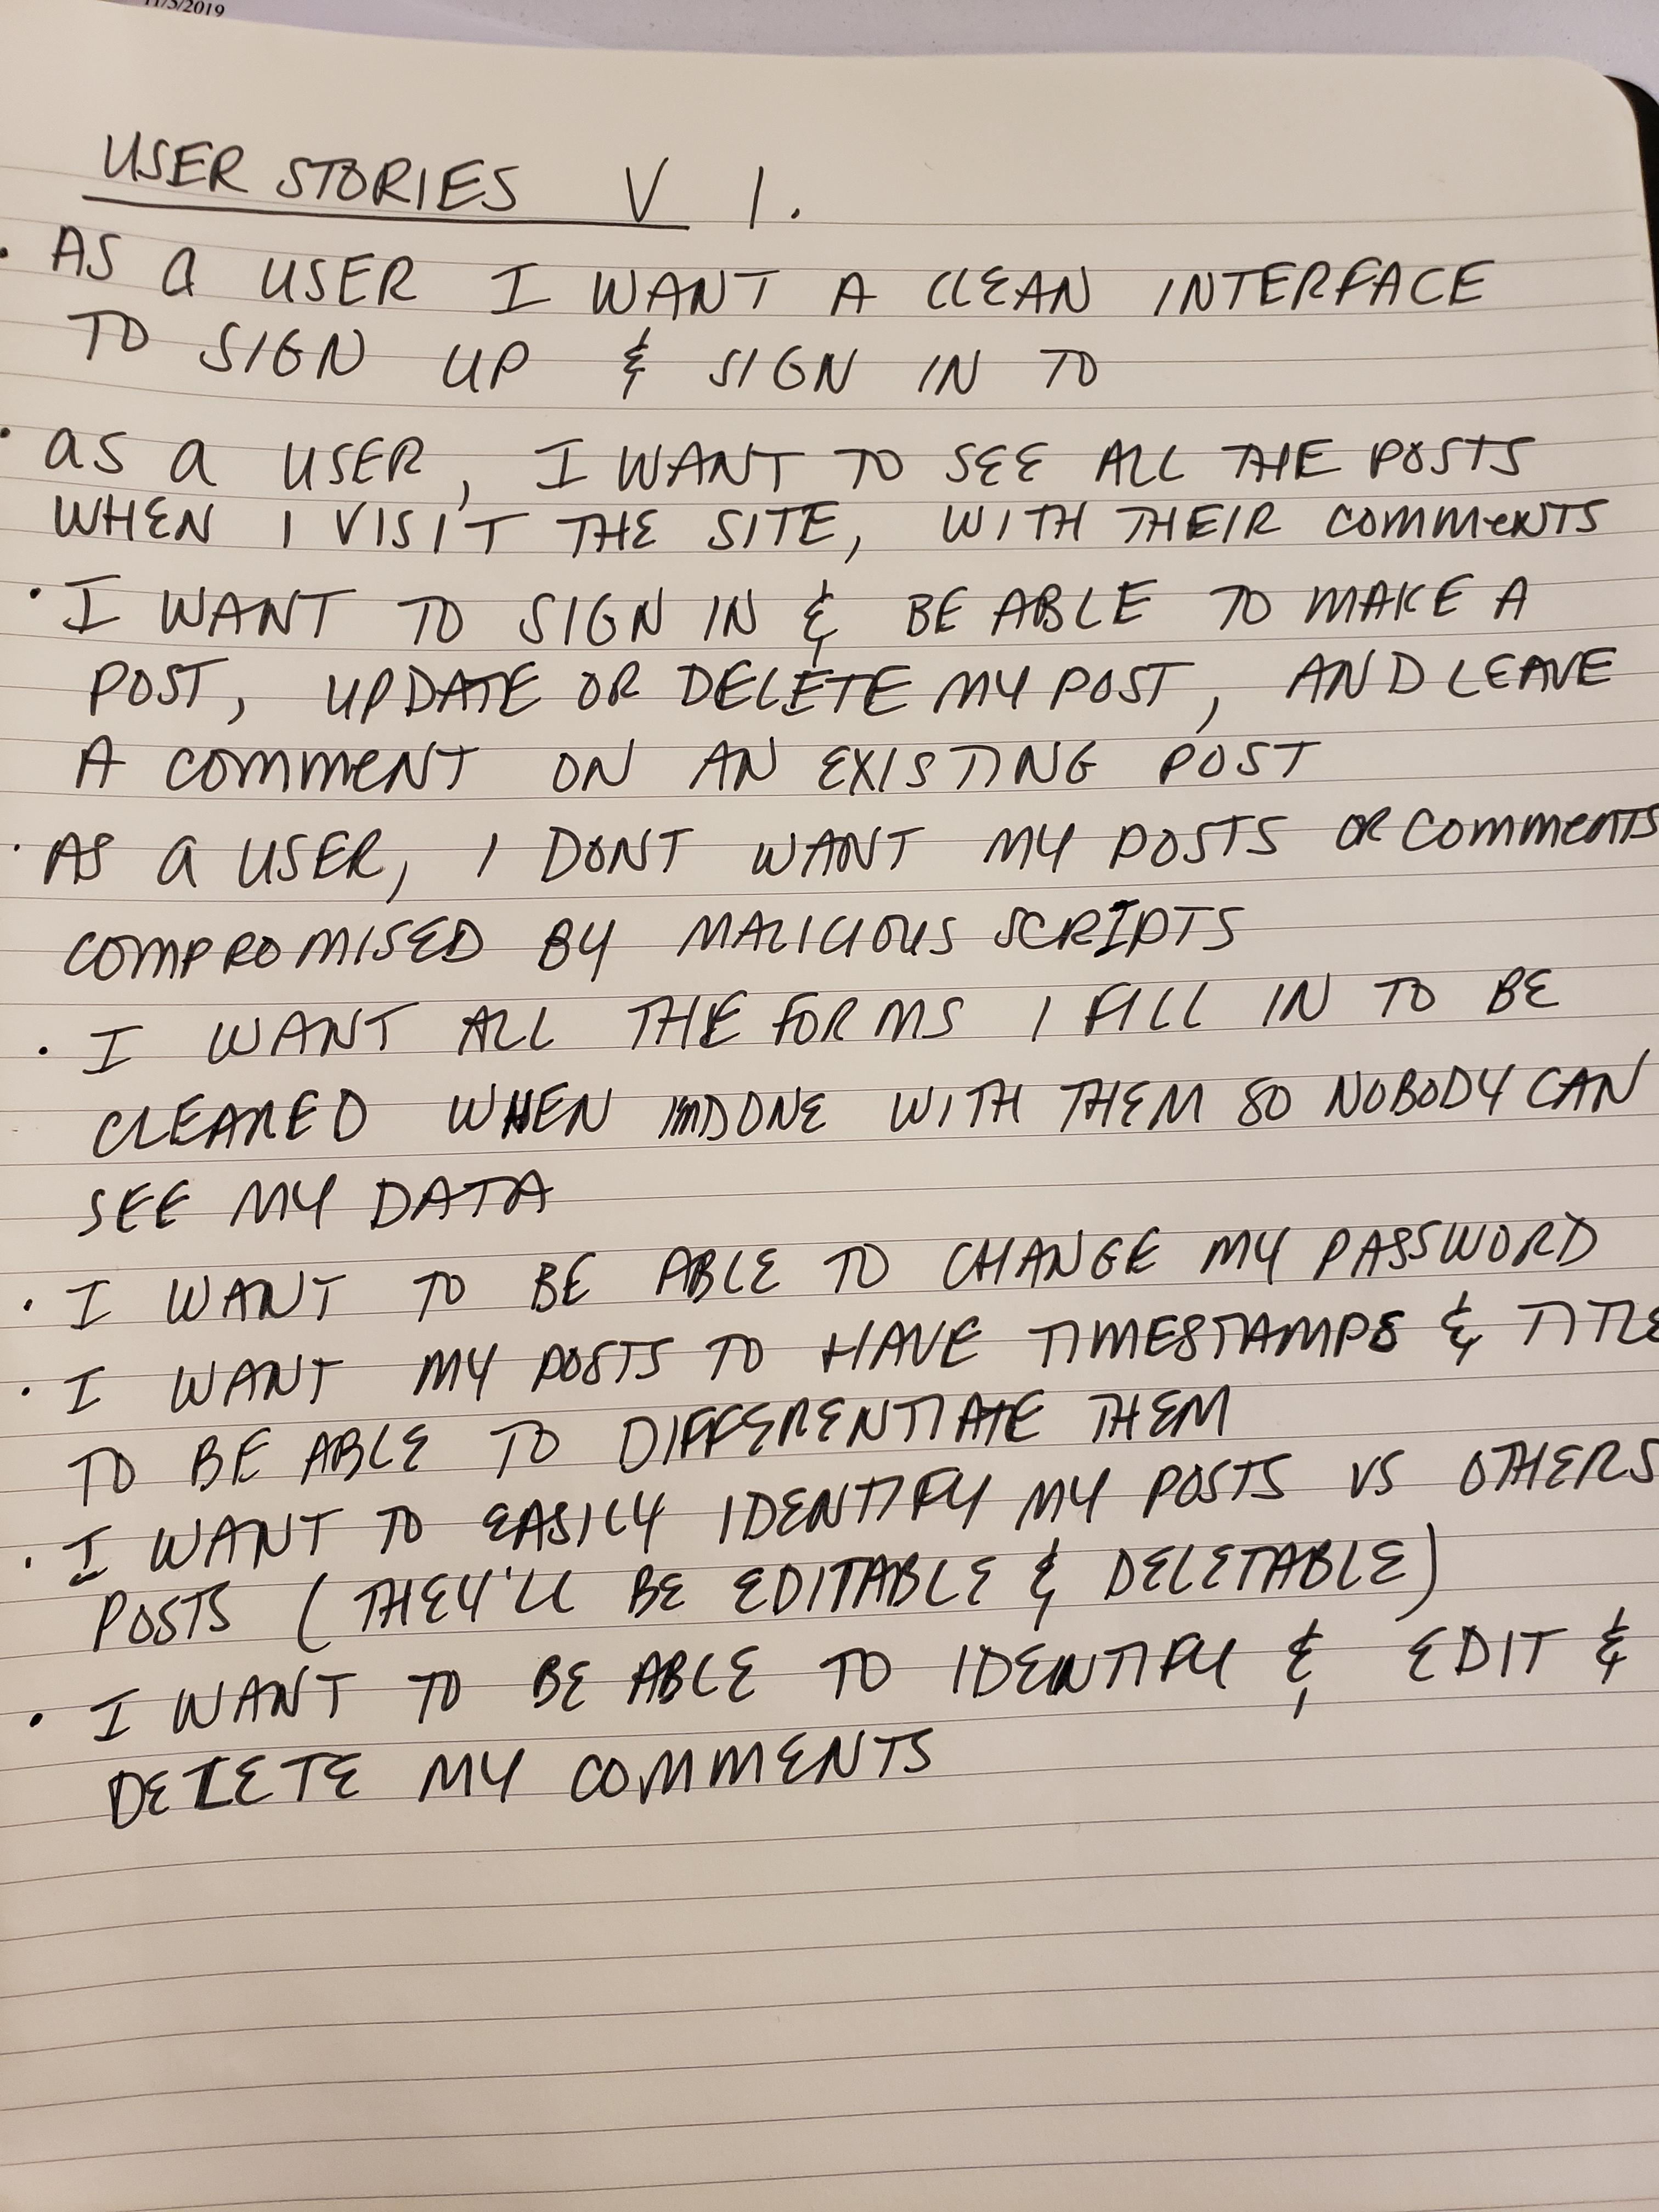 11/5/2019
USER STORIES V 1.
• AS A USER I WANT A CLEAN INTERFACE
TO SIGN UP & SIGN IN TO
• AS A USER, I WANT TO SEE ALL THE POSTS
WHEN I VISIT THE SITE, WITH THEIR COMMENTS
• I WANT TO SIGN IN & BE ABLE TO MAKE A
POST, UPDATE OR DELETE MY POST, AND LEAVE
A COMMENT ON AN EXISTING POST
• AS A USER, I DONT WANT MY POSTS OR COMMENTS
COMPROMISED BY MALICIOUS SCRIPTS
• I WANT ALL THE FORMS I FILL IN TO BE
CLEARED WHEN IM DONE WITH THEM SO NOBODY CAN
SEE MY DATA
• I WANT TO BE ABLE TO CHANGE MY PASSWORD
• I WANT MY POSTS TO HAVE TIMESTAMPS & TITLE
TO BE ABLE TO DIFFERENTIATE THEM
• I WANT TO EASILY IDENTIFY MY POSTS VS OTHERS
POSTS (THEY'LL BE EDITABLE & DELETABLE)
• I WANT TO BE ABLE TO IDENTIFY & EDIT &
DELETE MY COMMENTS